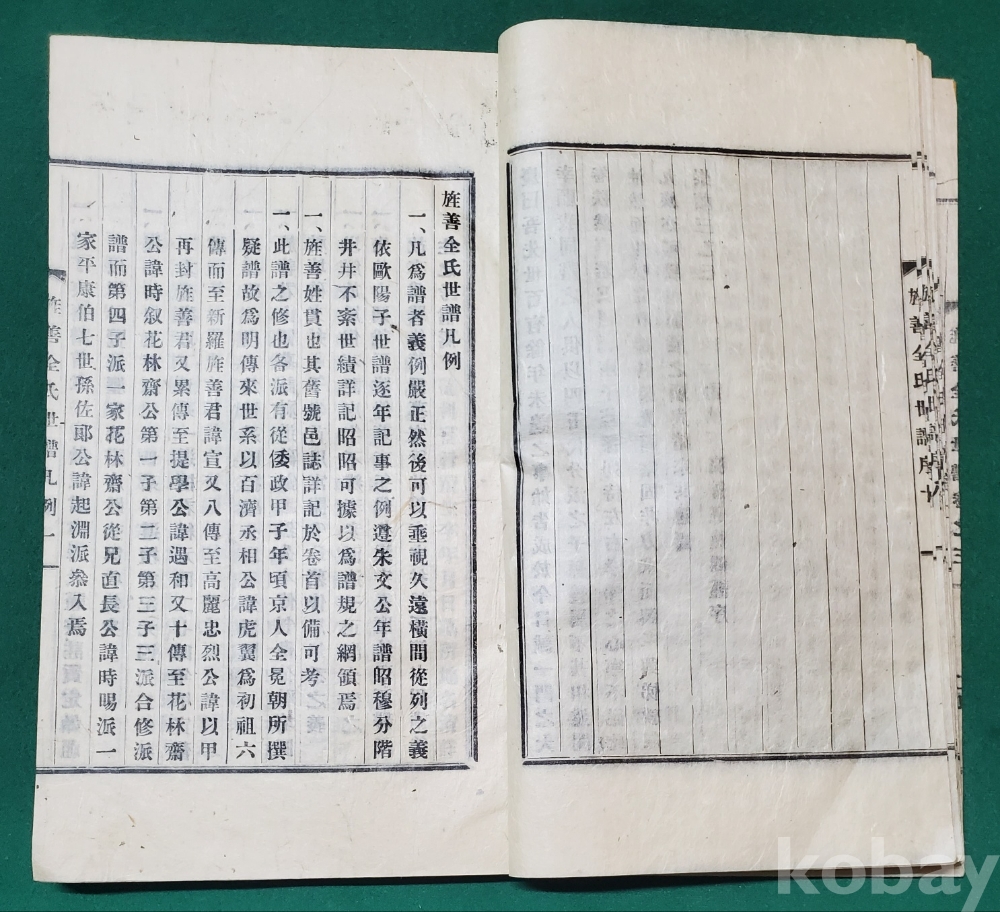 旌善全氏世譜凡例
一、凡爲譜者義例嚴正然後可以乖視久遠橫間從列之義
依歐陽子世譜逐年記事之例遵朱文公年譜昭穆分階
井井不紊世績詳記昭昭可據以爲譜規之網領焉
一、旌善姓貫也其舊號邑誌詳記於卷首以備可考
一、此譜之修也各派有從倭政甲子年頃京人全冕朝所撰
疑譜故爲明傳來世系以百濟丞相公諱虎翼爲初祖六
傳而至新羅旌善君諱宣又八傳至高麗忠烈公諱以甲
再封旌善君又累傳至提學公諱遇和又十傳至花林齋
公諱時叙花林齋公第一子第二子第三子三派合修派
譜而第四子派一家花林齋公從兄直長公諱時賜派一
家平康伯七世孫佐郞公諱起淵派叅入焉
旌善全氏世譜凡例 一
kobay